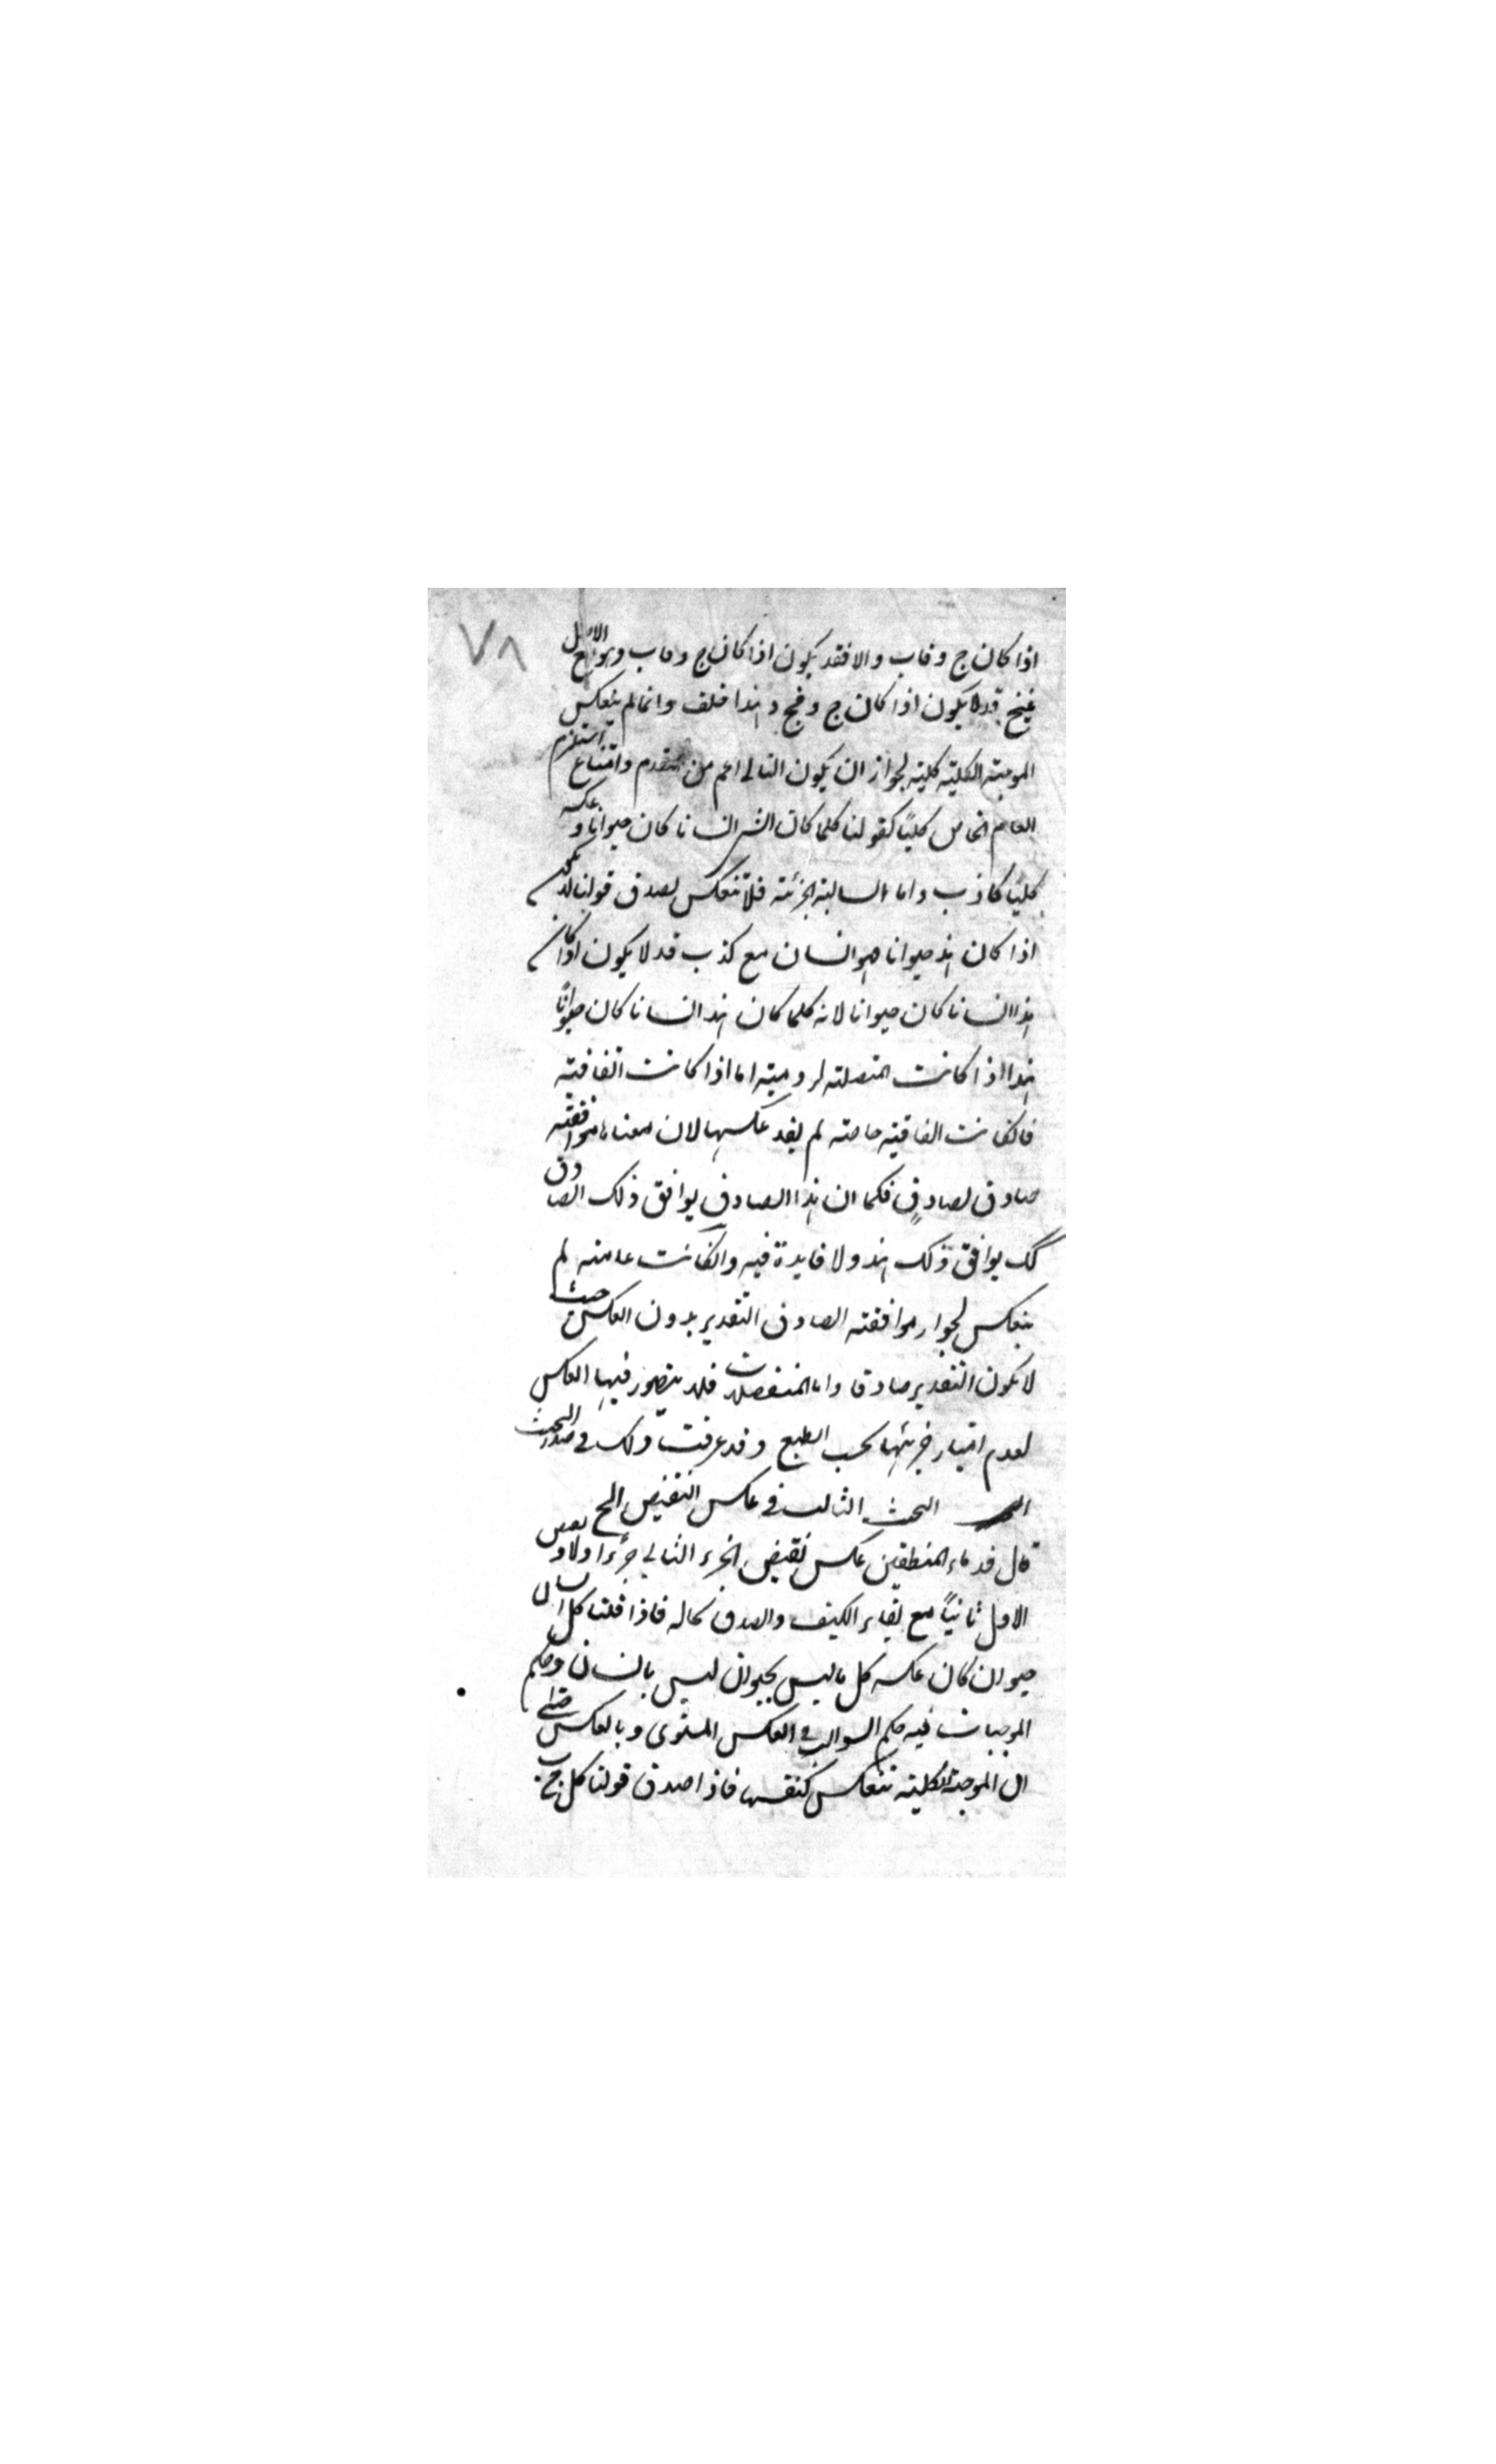 ٧٨
اذا كان ج د فاب والا فقد يكون اذا كان ج د فاب وهو مع الاصل
ينتج قد لا يكون اذا كان ج د فج د هذا خلف وانما لم ينعكس
الموجبة الكلية كلية لجواز ان يكون التالى اعم من المقدم وامتناع استلزام
العام الخاص كليا كقولنا كلما كان الشئ انسانا كان حيوانا وعكسه
كليا كاذب واما السالبة الجزئية فلا تنعكس لصدق قولنا قد لا يكون
اذا كان هذا حيوانا فهو انسان مع كذب قد لا يكون اذا كان
هذا انسانا كان حيوانا لانه كلما كان هذا انسانا كان حيوانا
هذا اذا كانت المتصلة لزومية اما اذا كانت اتفاقية
فان كانت اتفاقية خاصة لم يفد عكسها لان معناها موافقة
صادق لصادق فكما ان هذا الصادق يوافق ذلك الصادق
كك يوافق ذلك هذا ولا فايدة فيه وان كانت عامة لم
ينعكس لجواز موافقة الصادق التقدير بدون العكس حيث
لا يكون التقدير صادقا واما المنفصلات فلا يتصور فيها العكس
لعدم امتياز جزئيها بحسب الطبع وقد عرفت ذلك فى صدر البحث
البحث الثالث فى عكس النقيض الخ
قال قدماء المنطقيين عكس نقيض الجزء الثانى جزءا اولا ونقيض
الاول ثانيا مع بقاء الكيف والصدق بحاله فاذا قلنا كل انسان
حيوان كان عكسه كل ما ليس بحيوان ليس بانسان وحكم
الموجبات فيه حكم السوالب فى العكس المستوى وبالعكس حتى
ان الموجبة الكلية تنعكس كنفسها فاذا صدق قولنا كل ج ب